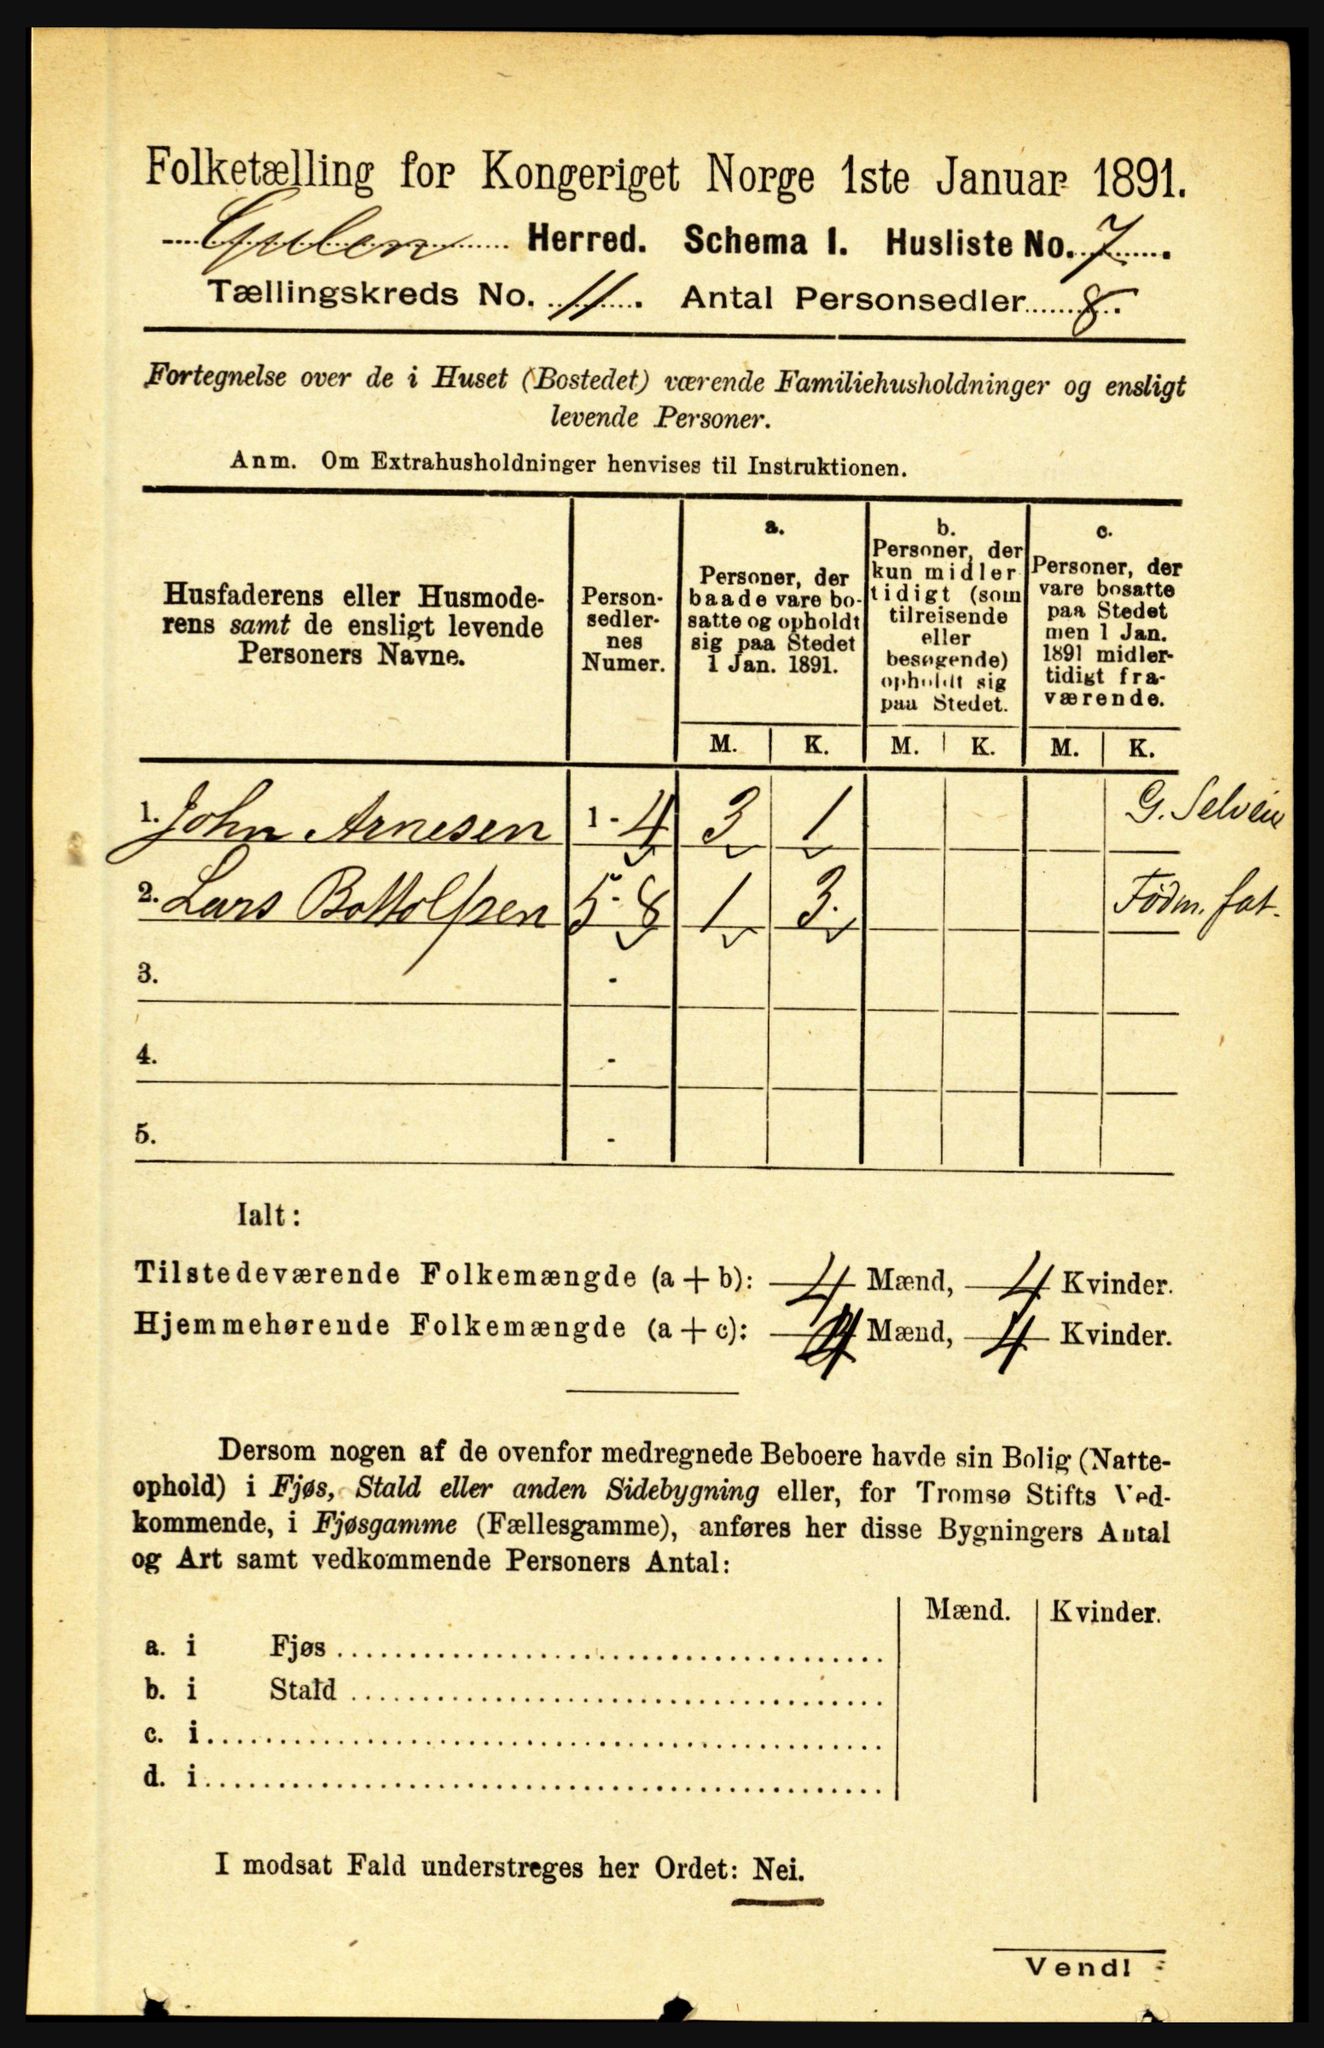 Folketælling for Kongeriget Norge 1ste Januar 1891.
Gulen Herred. Schema I. Husliste No. 7.
Tællingskreds No. 11. Antal Personsedler 8.
Fortegnelse over de i Huset (Bostedet) værende Familiehusholdninger og ensligt
levende Personer.
Anm. Om Extrahusholdninger henvises til Instruktionen.
Husfaderens eller Husmode-
rens samt de ensligt levende
Personers Navne.
Person-
sedler-
nes
Numer.
a.
Personer, der
baade vare bo-
satte og opholdt
sig paa Stedet
1 Jan. 1891.
b.
Personer, der
kun midler-
tidigt (som
tilreisende
eller
besøgende)
opholdt sig
paa Stedet.
c.
Personer, der
vare bosatte
paa Stedet
men 1 Jan.
1891 midler-
tidigt fra-
værende.
M. K. M. K. M. K.
1. John Arnesen 1 - 4 3 1 G. Selveier
2. Lars Bottolfsen 5 - 8 1 3. Fødm. fat.
3. -
4. -
5. -
Ialt:
Tilstedeværende Folkemængde (a + b): 4 Mænd, 4 Kvinder.
Hjemmehørende Folkemængde (a + c): 4 Mænd, 4 Kvinder.
Dersom nogen af de ovenfor medregnede Beboere havde sin Bolig (Natte-
ophold) i Fjøs, Stald eller anden Sidebygning eller, for Tromsø Stifts Ved-
kommende, i Fjøsgamme (Fællesgamme), anføres her disse Bygningers Antal
og Art samt vedkommende Personers Antal:
Mænd. Kvinder.
a. i Fjøs
b. i Stald
c. i
d. i
I modsat Fald understreges her Ordet: Nei.
Vend!